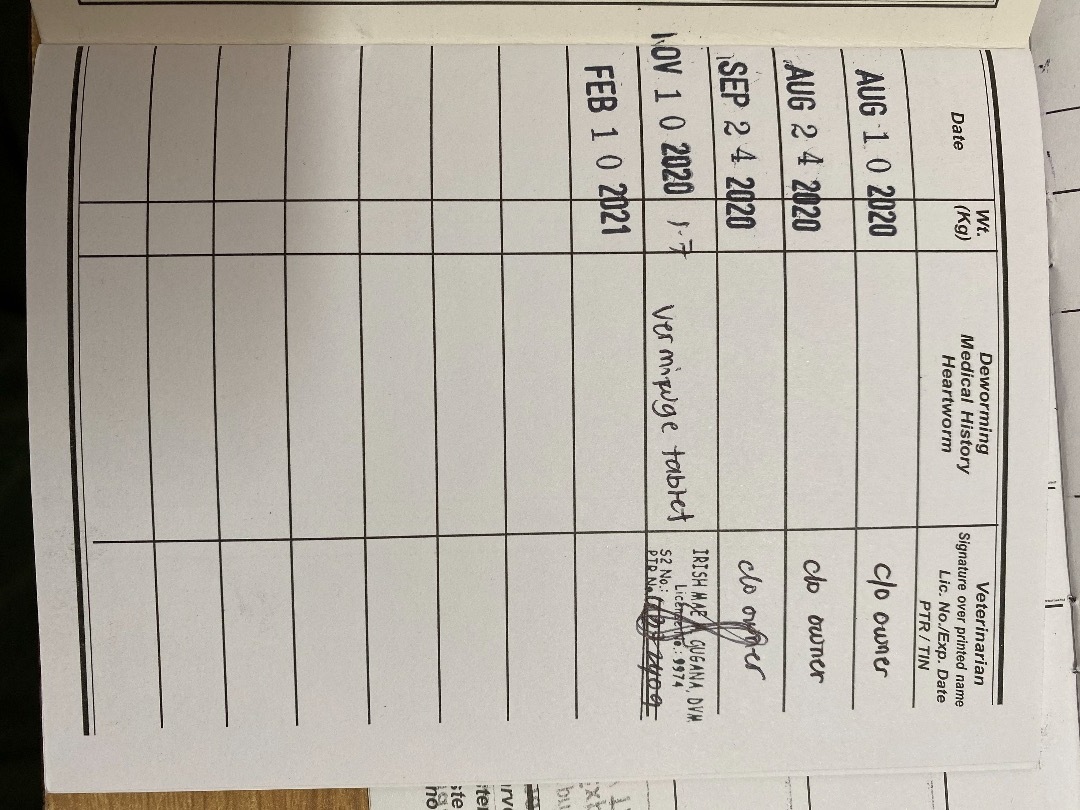 Date
Wt.
(Kg)
Deworming
Medical History
Heartworm
Veterinarian
Signature over printed name
Lic. No./Exp. Date
PTR / TIN
AUG 10 2020
c/o owner
AUG 24 2020
c/o owner
SEP 24 2020
c/o owner
NOV 10 2020 1.7 vermifuge tablet
IRISH MAE GUGANA, DVM
License No.: 9974
S2 No.:
PTR No.
FEB 10 2021